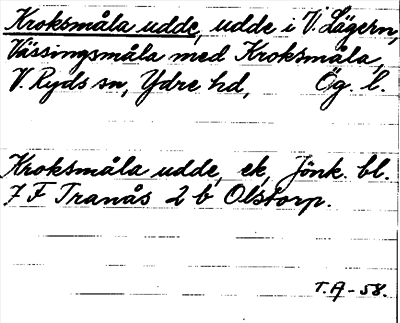 Kroksmåla udde, udde i V. Lägern,
Vässingsmåla med Kroksmåla,
V. Ryds sn, Ydre hd, Ög. l.
Kroksmåla udde, ek, Jönk. bl.
7 F Tranås 2 b Olstorp.
T.A-58.